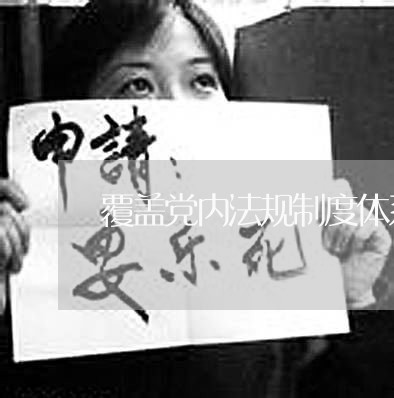 申請：
覆盖党内法规制度体
安乐死